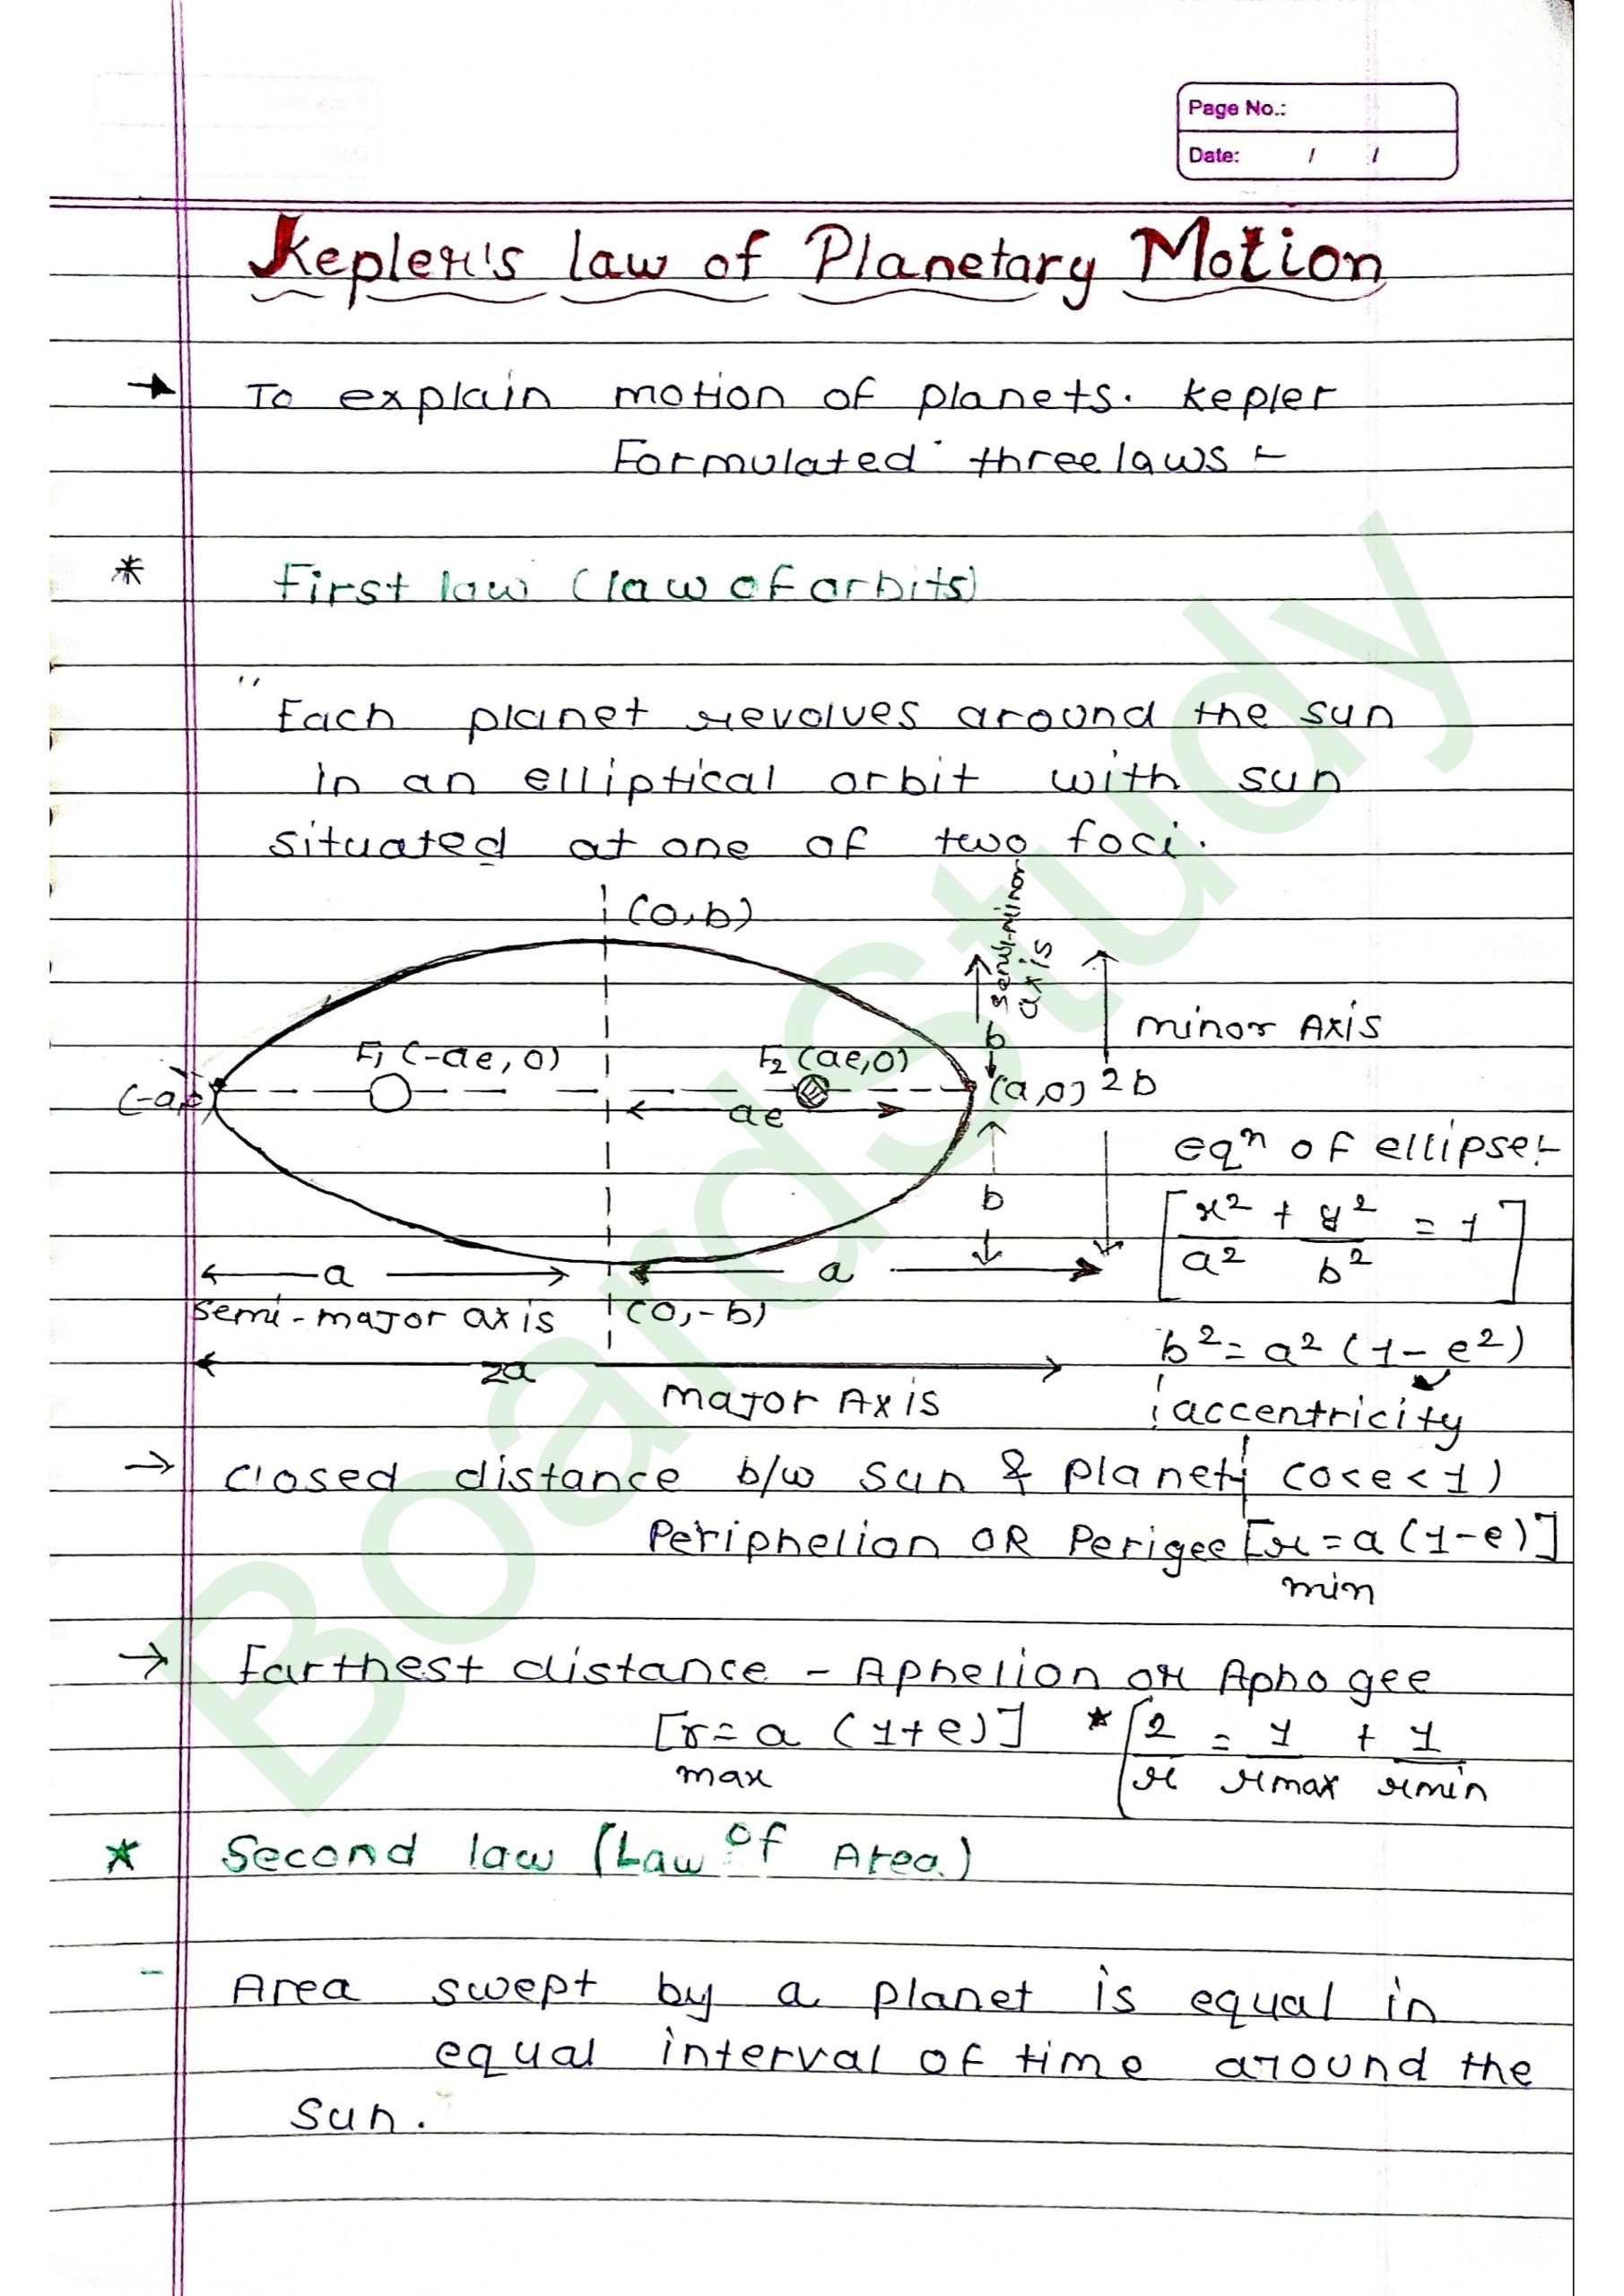 Page No.:
Date: / /
Kepler's law of Planetary Motion
→ To explain motion of planets. Kepler
Formulated three laws :-
* First law (law of orbits)
"Each planet revolves around the sun
in an elliptical orbit with sun
situated at one of two foci.
(0,b)
semi-minor
axis
minor Axis
F1 (-ae, 0)
F2 (ae,0)
b
(-a,0)
(a,0)
2b
ae
eqⁿ of ellipse:-
b
[x²/a² + y²/b² = 1]
a
a
semi-major axis
(0,-b)
b² = a² (1 - e²)
2a
Major Axis
accentricity
→ Closed distance b/w sun & planet (0<e<1)
Periphelion OR Perigee [r = a (1-e)]
min
→ Farthest distance - Aphelion or Aphogee
[r = a (1+e)] * [2/r = 1/rmax + 1/rmin
max
* Second law (Law of Area)
- Area swept by a planet is equal in
equal interval of time around the
sun.
BoardStudy